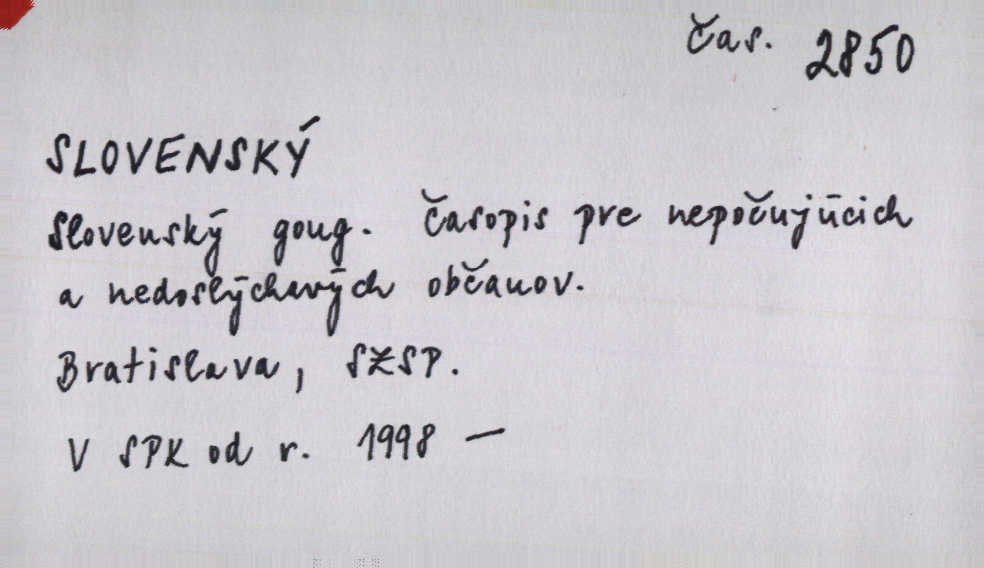 Čas. 2850
SLOVENSKÝ
Slovenský goug. Časopis pre nepočujúcich
a nedoslýchavých občanov.
Bratislava, SZSP.
V SPK od r. 1998 —